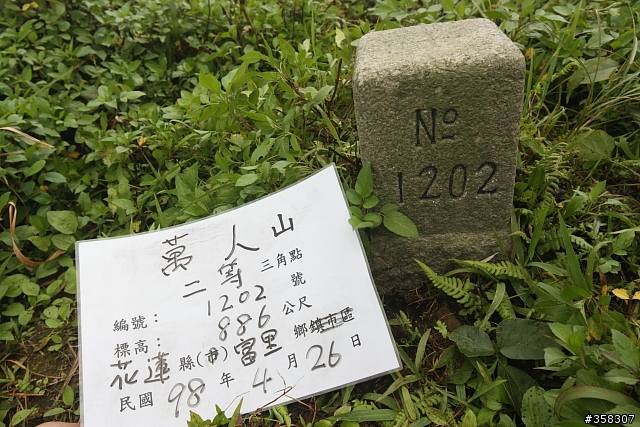 No
1202
萬人山
二等三角點
編號：1202號
標高：886公尺
花蓮縣(市)富里鄉鎮市區
民國98年4月26日
#358307